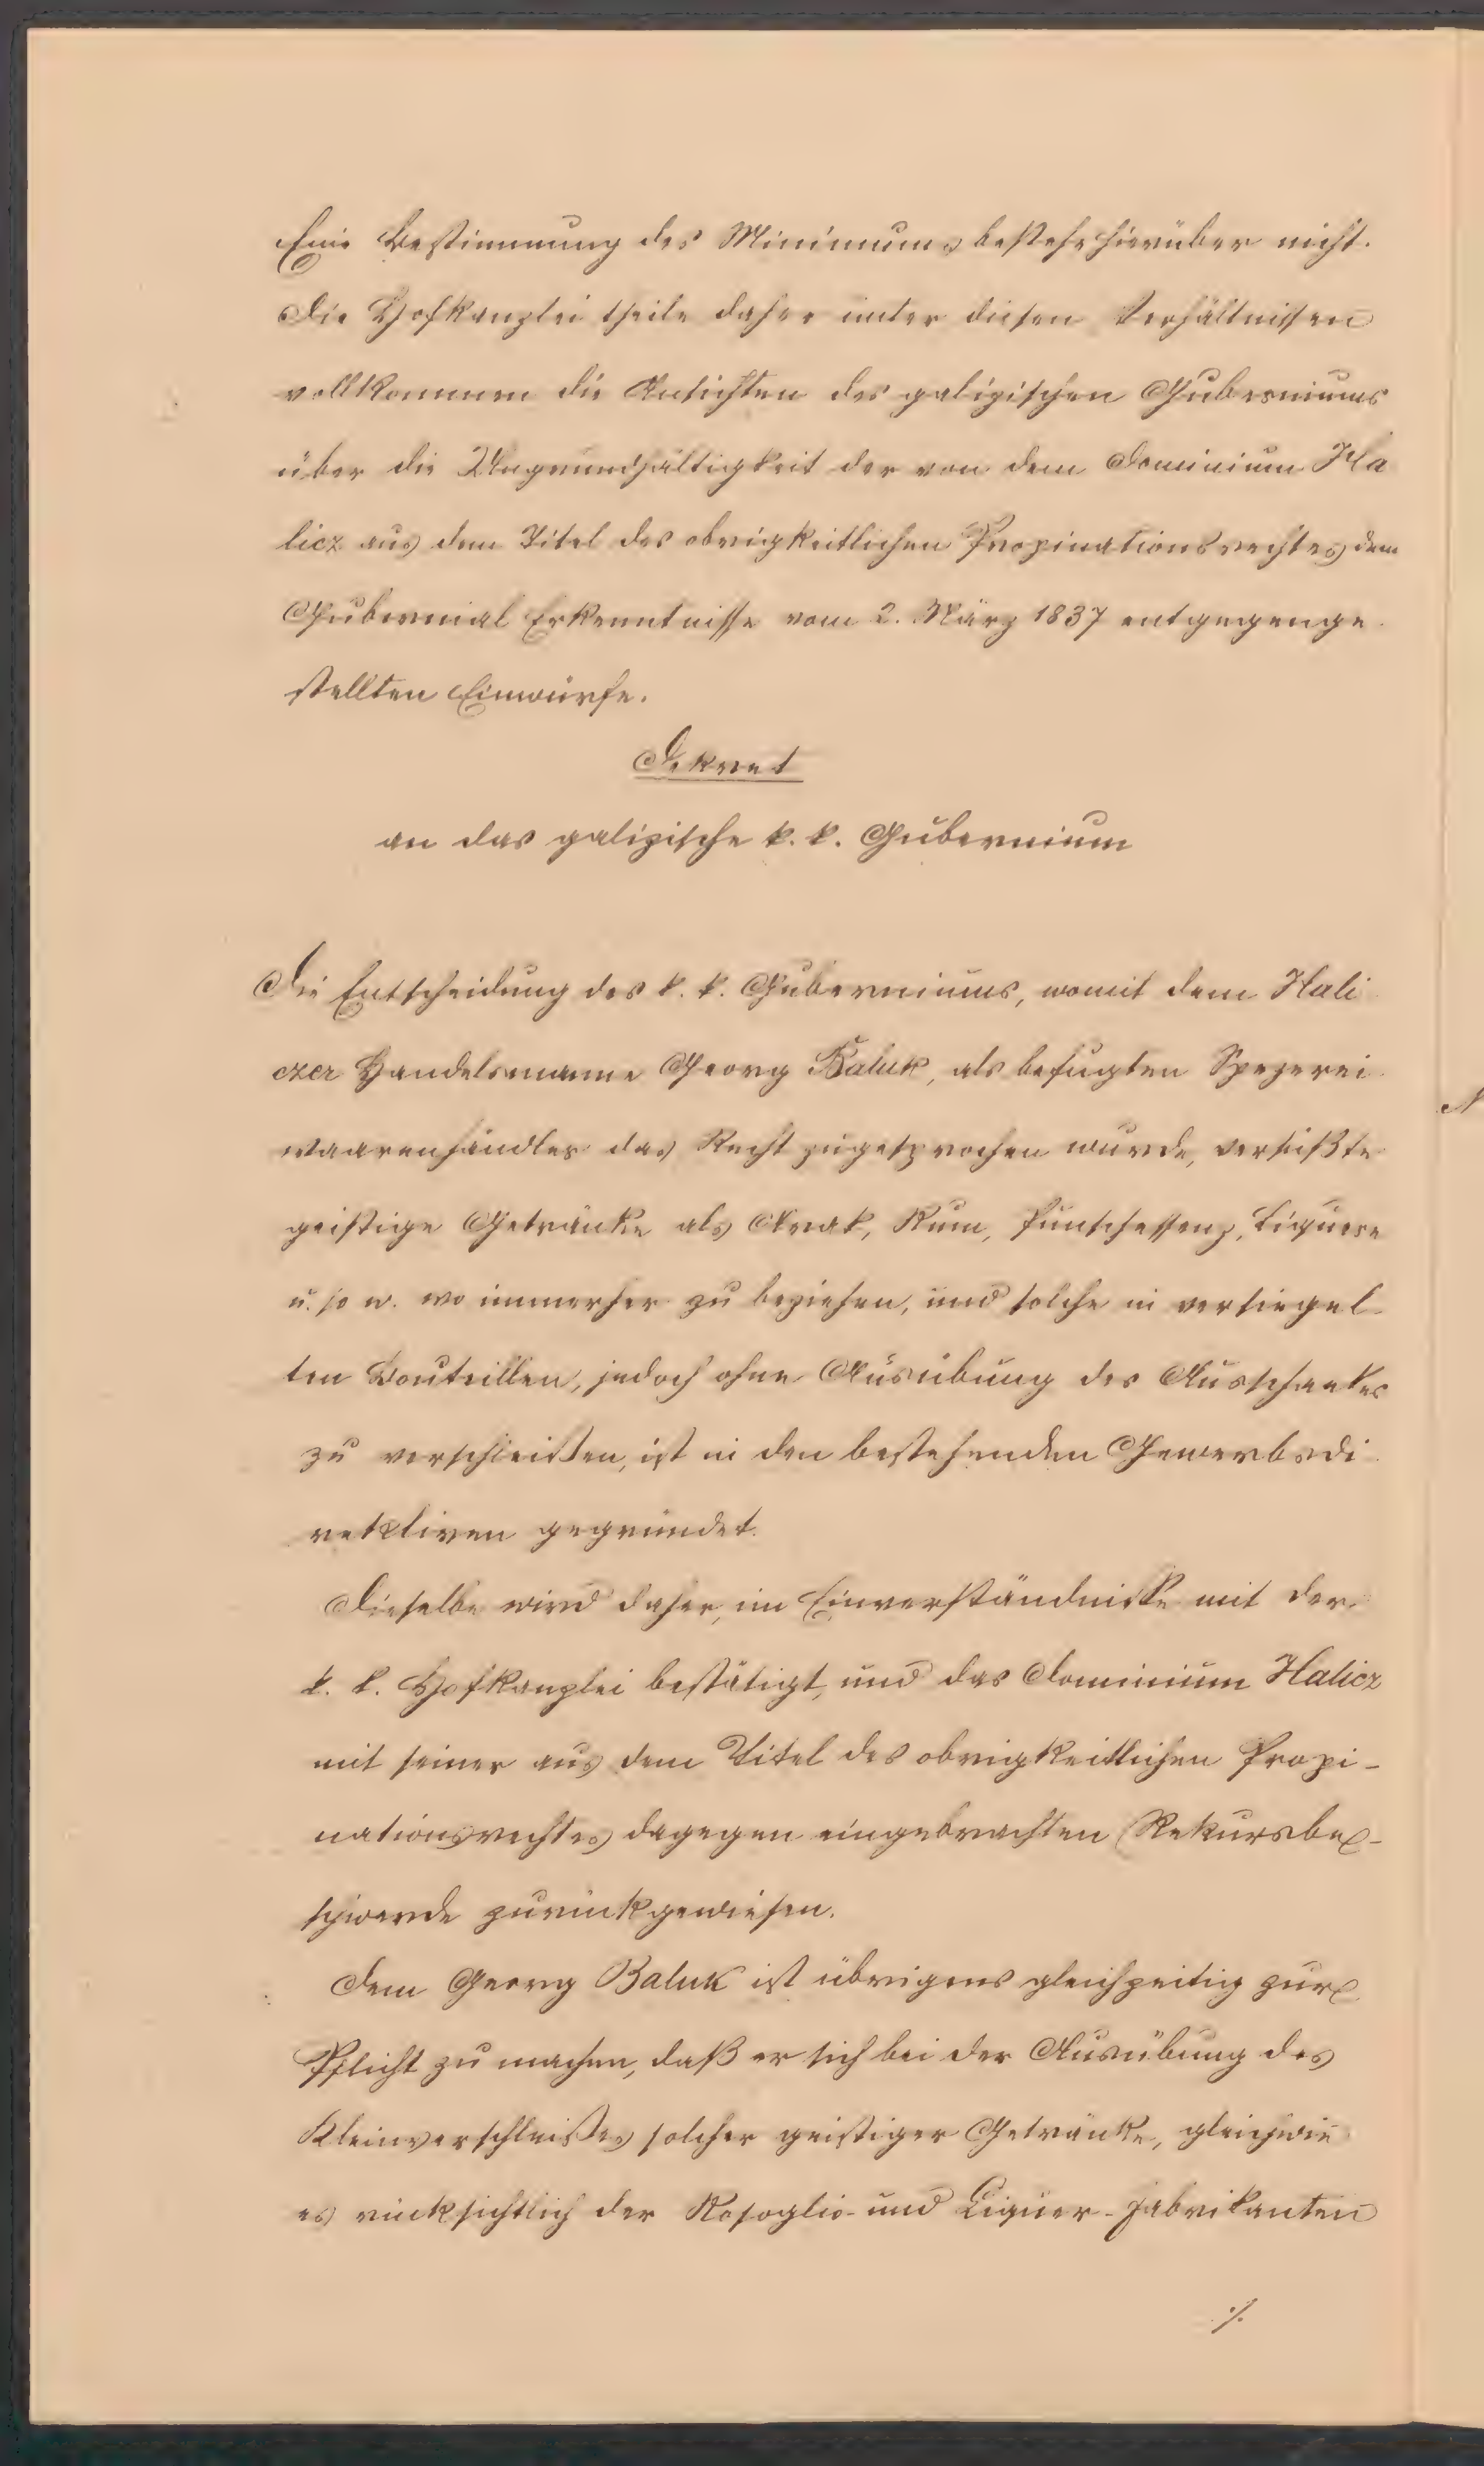 Eine Bestimmung des Minimums bestehe hierüber nicht.
Die Hofkanzlei theile daher unter diesen Verhältnissen
vollkommen die Ansichten des galizischen Guberniums
über die Ungrundhältigkeit der von dem Dominium Ha
licz aus dem Titel des obrigkeitlichen Propinationsrechtes dem
Gubernial Erkenntnisse vom 2. März 1837 entgegenge
stellten Einwürfe.
Dekret
an das galizische k. k. Gubernium
Die Entscheidung des k. k. Guberniums, womit dem Hali
czer Handelsmanne Georg Baluk, als befugten Spezerei
waarenhändler das Recht zugesprochen wurde, versüßte
geistige Getränke als Arak, Rum, Punschessenz, Liquere
u. so w. wo immerher zu beziehen, und solche in versiegel
ten Bouteillen, jedoch ohne Ausübung des Ausschankes
zu verschleißen, ist in den bestehenden Gewerbsdi
rektiven gegründet.
Dieselbe wird daher, im Einverständniße mit der
k. k. Hofkanzlei bestätigt, und das Dominium Halicz
mit seiner aus dem Titel des obrigkeitlichen Propi-
nationsrechtes dagegen eingebrachten Rekursbe-
schwerde zurückgewiesen.
Dem Georg Baluk ist übrigens gleichzeitig zur
Pflicht zu machen, daß er sich bei der Ausübung des
Kleinverschleißes solcher geistiger Getränke, gleichwie
es rücksichtlich der Rosoglio- und Liquer-Fabrikanten
./.